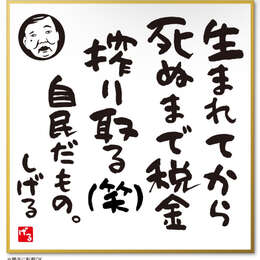 生まれてから
死ぬまで税金
搾り取る(笑)
自民だもの。
しげる
げる